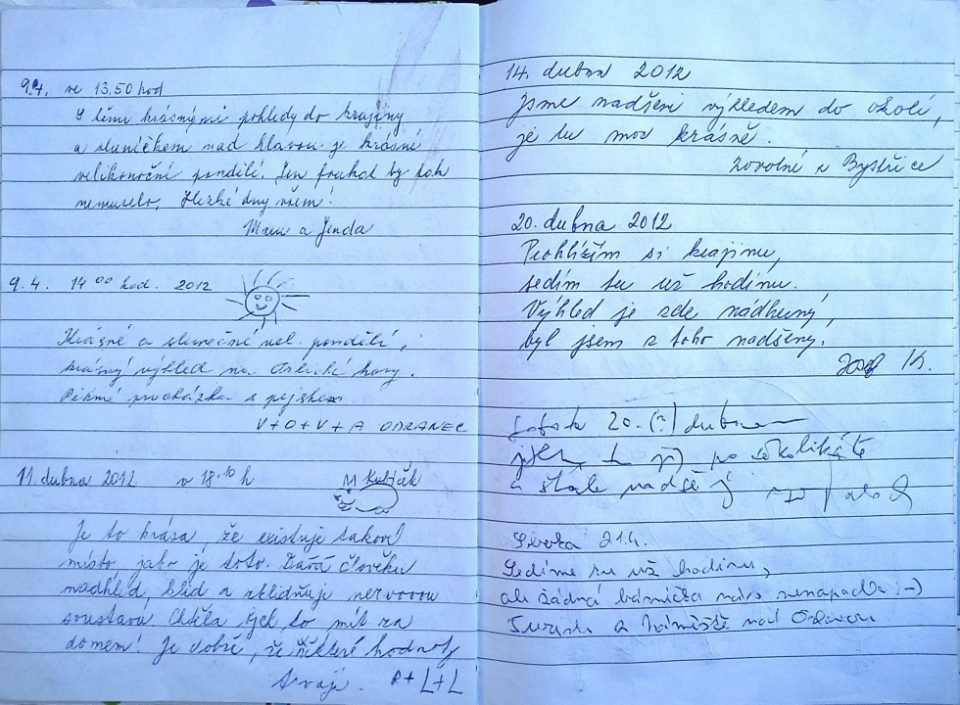 9.4. ve 13.50 hod
S těmi krásnými pohledy do krajiny
a sluníčkem nad hlavou je krásné
velikonoční pondělí. Jen foukat by tak
nemuselo. Hezké dny všem!
a Jinda
9.4. 14 00 hod. 2012
Krásné a slunečné vel. pondělí,
krásný výhled na Orlické hory.
Pěkná procházka s pejskem
V+O+V+A ODRANEC
11. dubna 2012 v 18.10 h
M
Je to krása, že existuje takové
místo jako je toto. Dává člověku
nadhled, klid a zklidňuje nervovou
soustavu. Chtěla bych to mít za
domem! Je dobře, že některé hodnoty
trvají. R+L+L
14. dubna 2012
Jsme nadšeni výhledem do okolí,
je tu moc krásně.
z Bystřice
20. dubna 2012
Prohlížím si krajinu,
sedím tu už hodinu.
Výhled je zde nádherný,
byl jsem z toho nadšený.
Josef K.
Sobota 20. (?) dubna
jsem tu již po několikáté
a stále nadšený
Sobota 21.4.
Sedíme tu už hodinu,
ale žádná básnička nás nenapadla :-)
a Náměště nad Oslavou